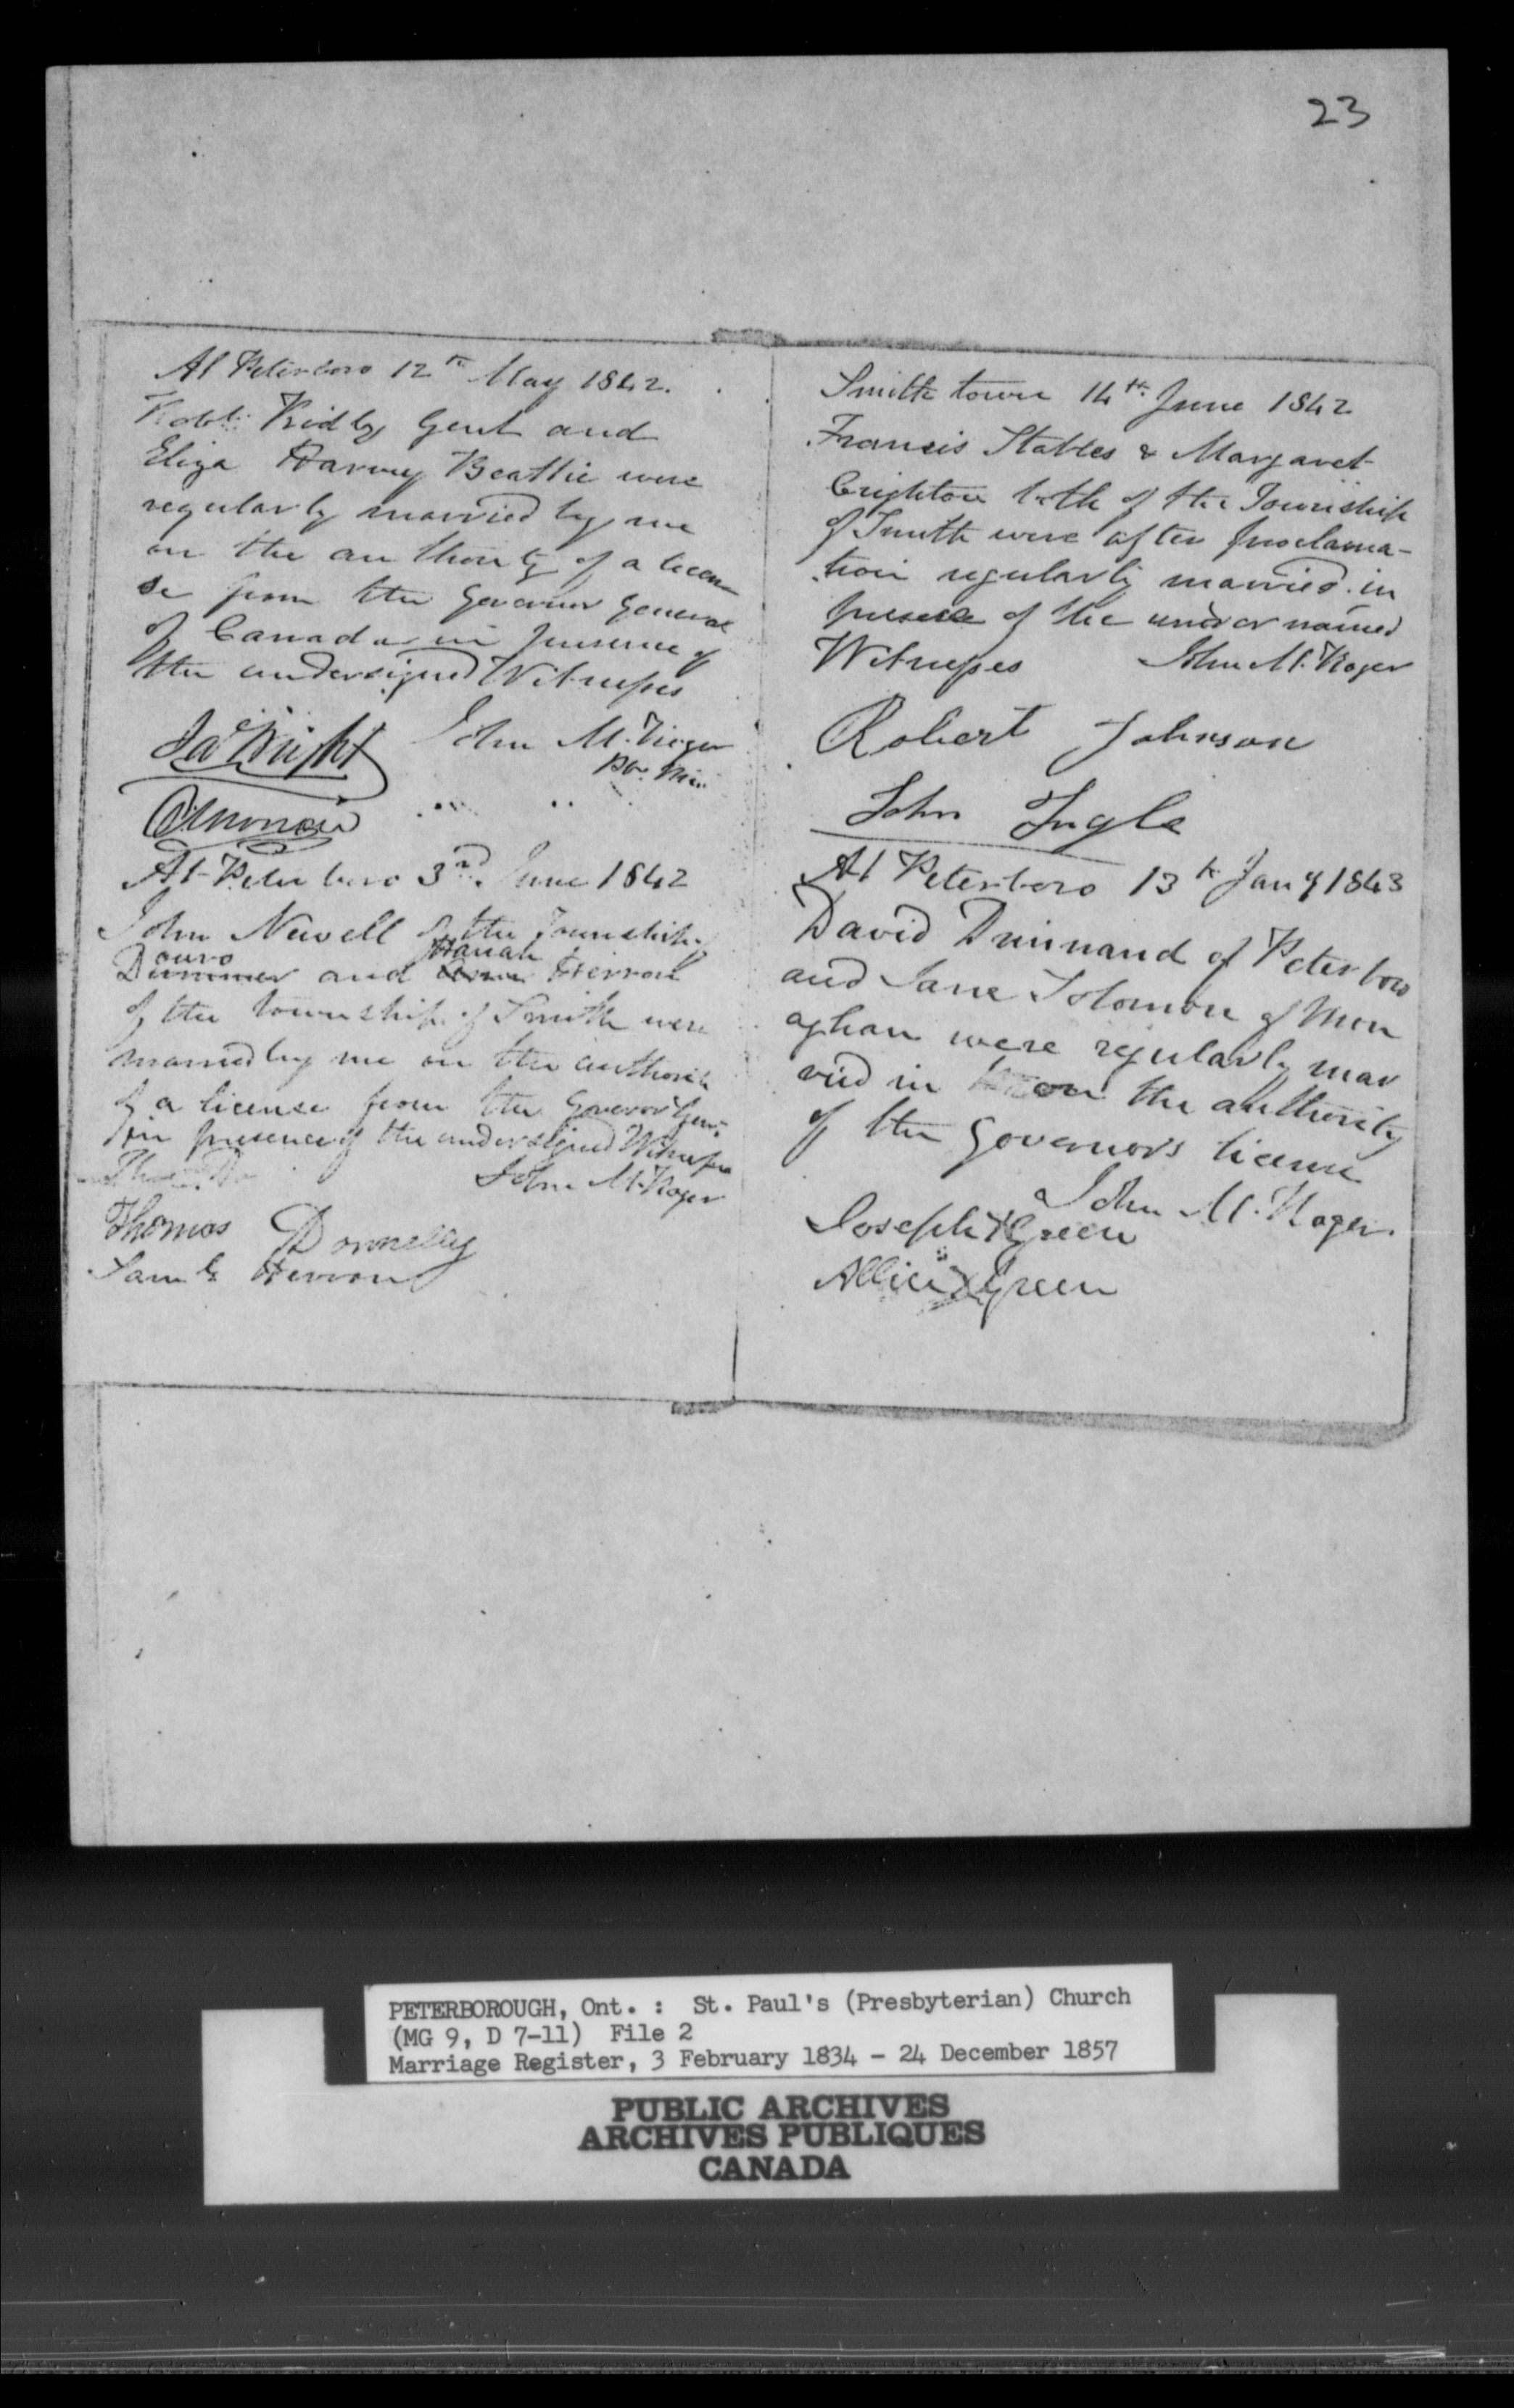 23
At Peterboro 12th May 1842.
Robt. Ridley Gent and
Eliza Harvey Beattie were
regularly married by me
on the authority of a licen
se from the Governor General
of Canada in presence of
the undersigned Witnesses
Ja Wright John M. Roger
Pbn. Min.
At Peterboro 3rd June 1842
John Newell of the Township of
ouro Hanah
Dummer and Herron
of the township of Smith were
married by me on the authority
of a license from the Governor Genl.
in presence of the undersigned Witnesses
John M. Roger
Thomas Donnelly
Saml. Herron
Smith town 14th June 1842
Francis Stables & Margaret
Crighton both of the Township
of Smith were after proclama-
tion regularly married in
presence of the under named
Witnesses John M. Roger
Robert Johnson
John Ingle
At Peterboro 13th Jany 1843
David Drimnand of Peterboro
and Jane Solomon of Mon
aghan were regularly mar
ried in on the authority
of the Governors license
John M. Roger.
Joseph X Green
Allice X Green
PETERBOROUGH, Ont. : St. Paul's (Presbyterian) Church
(MG 9, D 7-11) File 2
Marriage Register, 3 February 1834 - 24 December 1857
PUBLIC ARCHIVES
ARCHIVES PUBLIQUES
CANADA